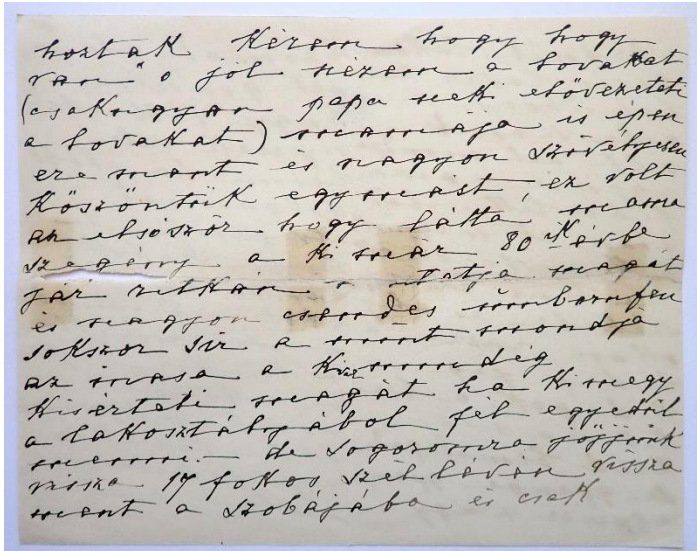 hoztak Kérem hogy hogy
van" ő jól nézem a lovakat
(csakugyan papa neki elővezeteti
a lovakat) mamája is épen
erre ment és nagyon szivélyesen
Köszöntök egymást, ez volt
az elsőször hogy látta mama
szegény a Ki már 80 ik évbe
jár ritkán mutatja magát
és nagyon csendes
sokszor sir a mint mondja
az inasa a Ki mindég
Kisérteti magát ha Ki megy
a lakosztályából fél egyedül
menni. – de sogoromra jöjjünk
vissza 17 fokos szél lévén vissza
ment a szobájába és csak